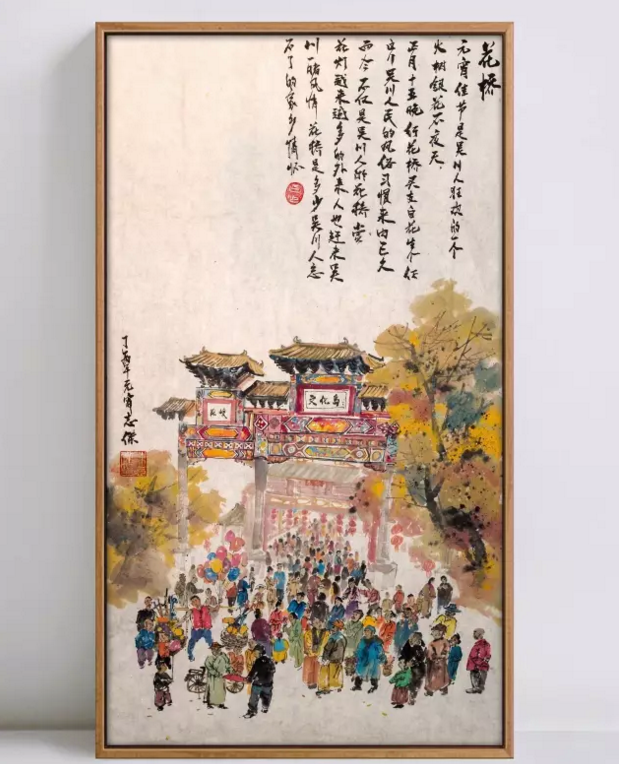 花桥
元宵佳节是吴川人狂欢的一个
火树银花不夜天.
正月十五晚行花桥天主白花生个仔
中吴川人民的风俗习惯来内已久
而今不仅是吴川人的花桥赏
花灯越来越多的外来人也赶来吴
川一睹风情花桥是多少吴川人忘
不了的家乡情怀
文化岛
年元宵志保